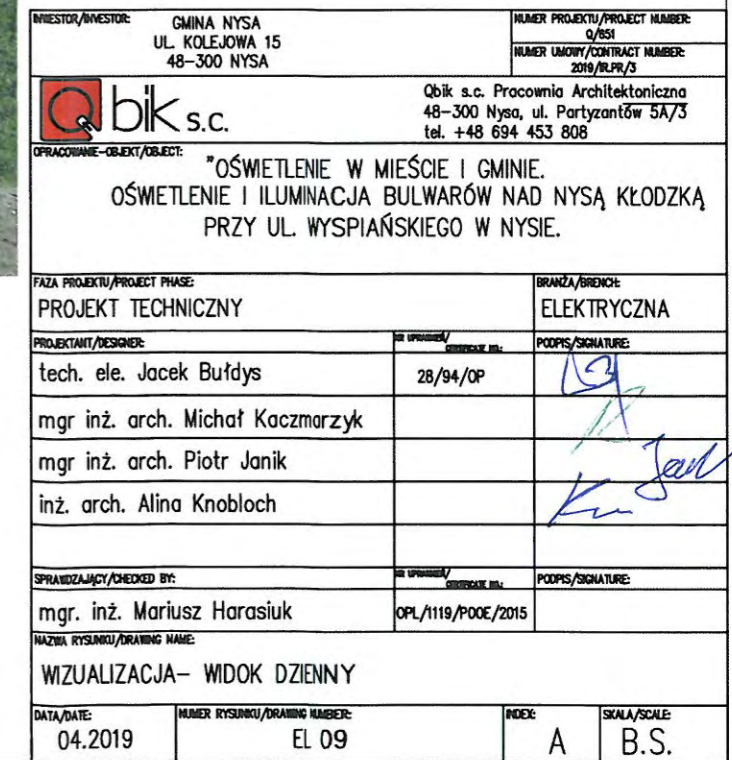 INWESTOR/INVESTOR:
GMINA NYSA
UL. KOLEJOWA 15
48-300 NYSA
NUMER PROJEKTU/PROJECT NUMBER:
Q/651
NUMER UMOWY/CONTRACT NUMBER:
2019/IR.PR/3
Qbik s.c.
Qbik s.c. Pracownia Architektoniczna
48-300 Nysa, ul. Partyzantów 5A/3
tel. +48 694 453 808
OPRACOWANIE-OBJEKT/OBJECT:
"OŚWIETLENIE W MIEŚCIE I GMINIE.
OŚWIETLENIE I ILUMINACJA BULWARÓW NAD NYSĄ KŁODZKĄ
PRZY UL. WYSPIAŃSKIEGO W NYSIE.
FAZA PROJEKTU/PROJECT PHASE:
PROJEKT TECHNICZNY
BRANŻA/BRENCH:
ELEKTRYCZNA
PROJEKTANT/DESIGNER:
NR UPRAWNIEŃ/
CERTIFICATE NO.:
PODPIS/SIGNATURE:
tech. ele. Jacek Bułdys
28/94/OP
mgr inż. arch. Michał Kaczmarzyk
mgr inż. arch. Piotr Janik
inż. arch. Alina Knobloch
SPRAWDZAJĄCY/CHECKED BY:
NR UPRAWNIEŃ/
CERTIFICATE NO.:
PODPIS/SIGNATURE:
mgr. inż. Mariusz Harasiuk
OPL/1119/POOE/2015
NAZWA RYSUNKU/DRAWING NAME:
WIZUALIZACJA- WIDOK DZIENNY
DATA/DATE:
04.2019
NUMER RYSUNKU/DRAWING NUMBER:
EL 09
INDEX:
A
SKALA/SCALE:
B.S.